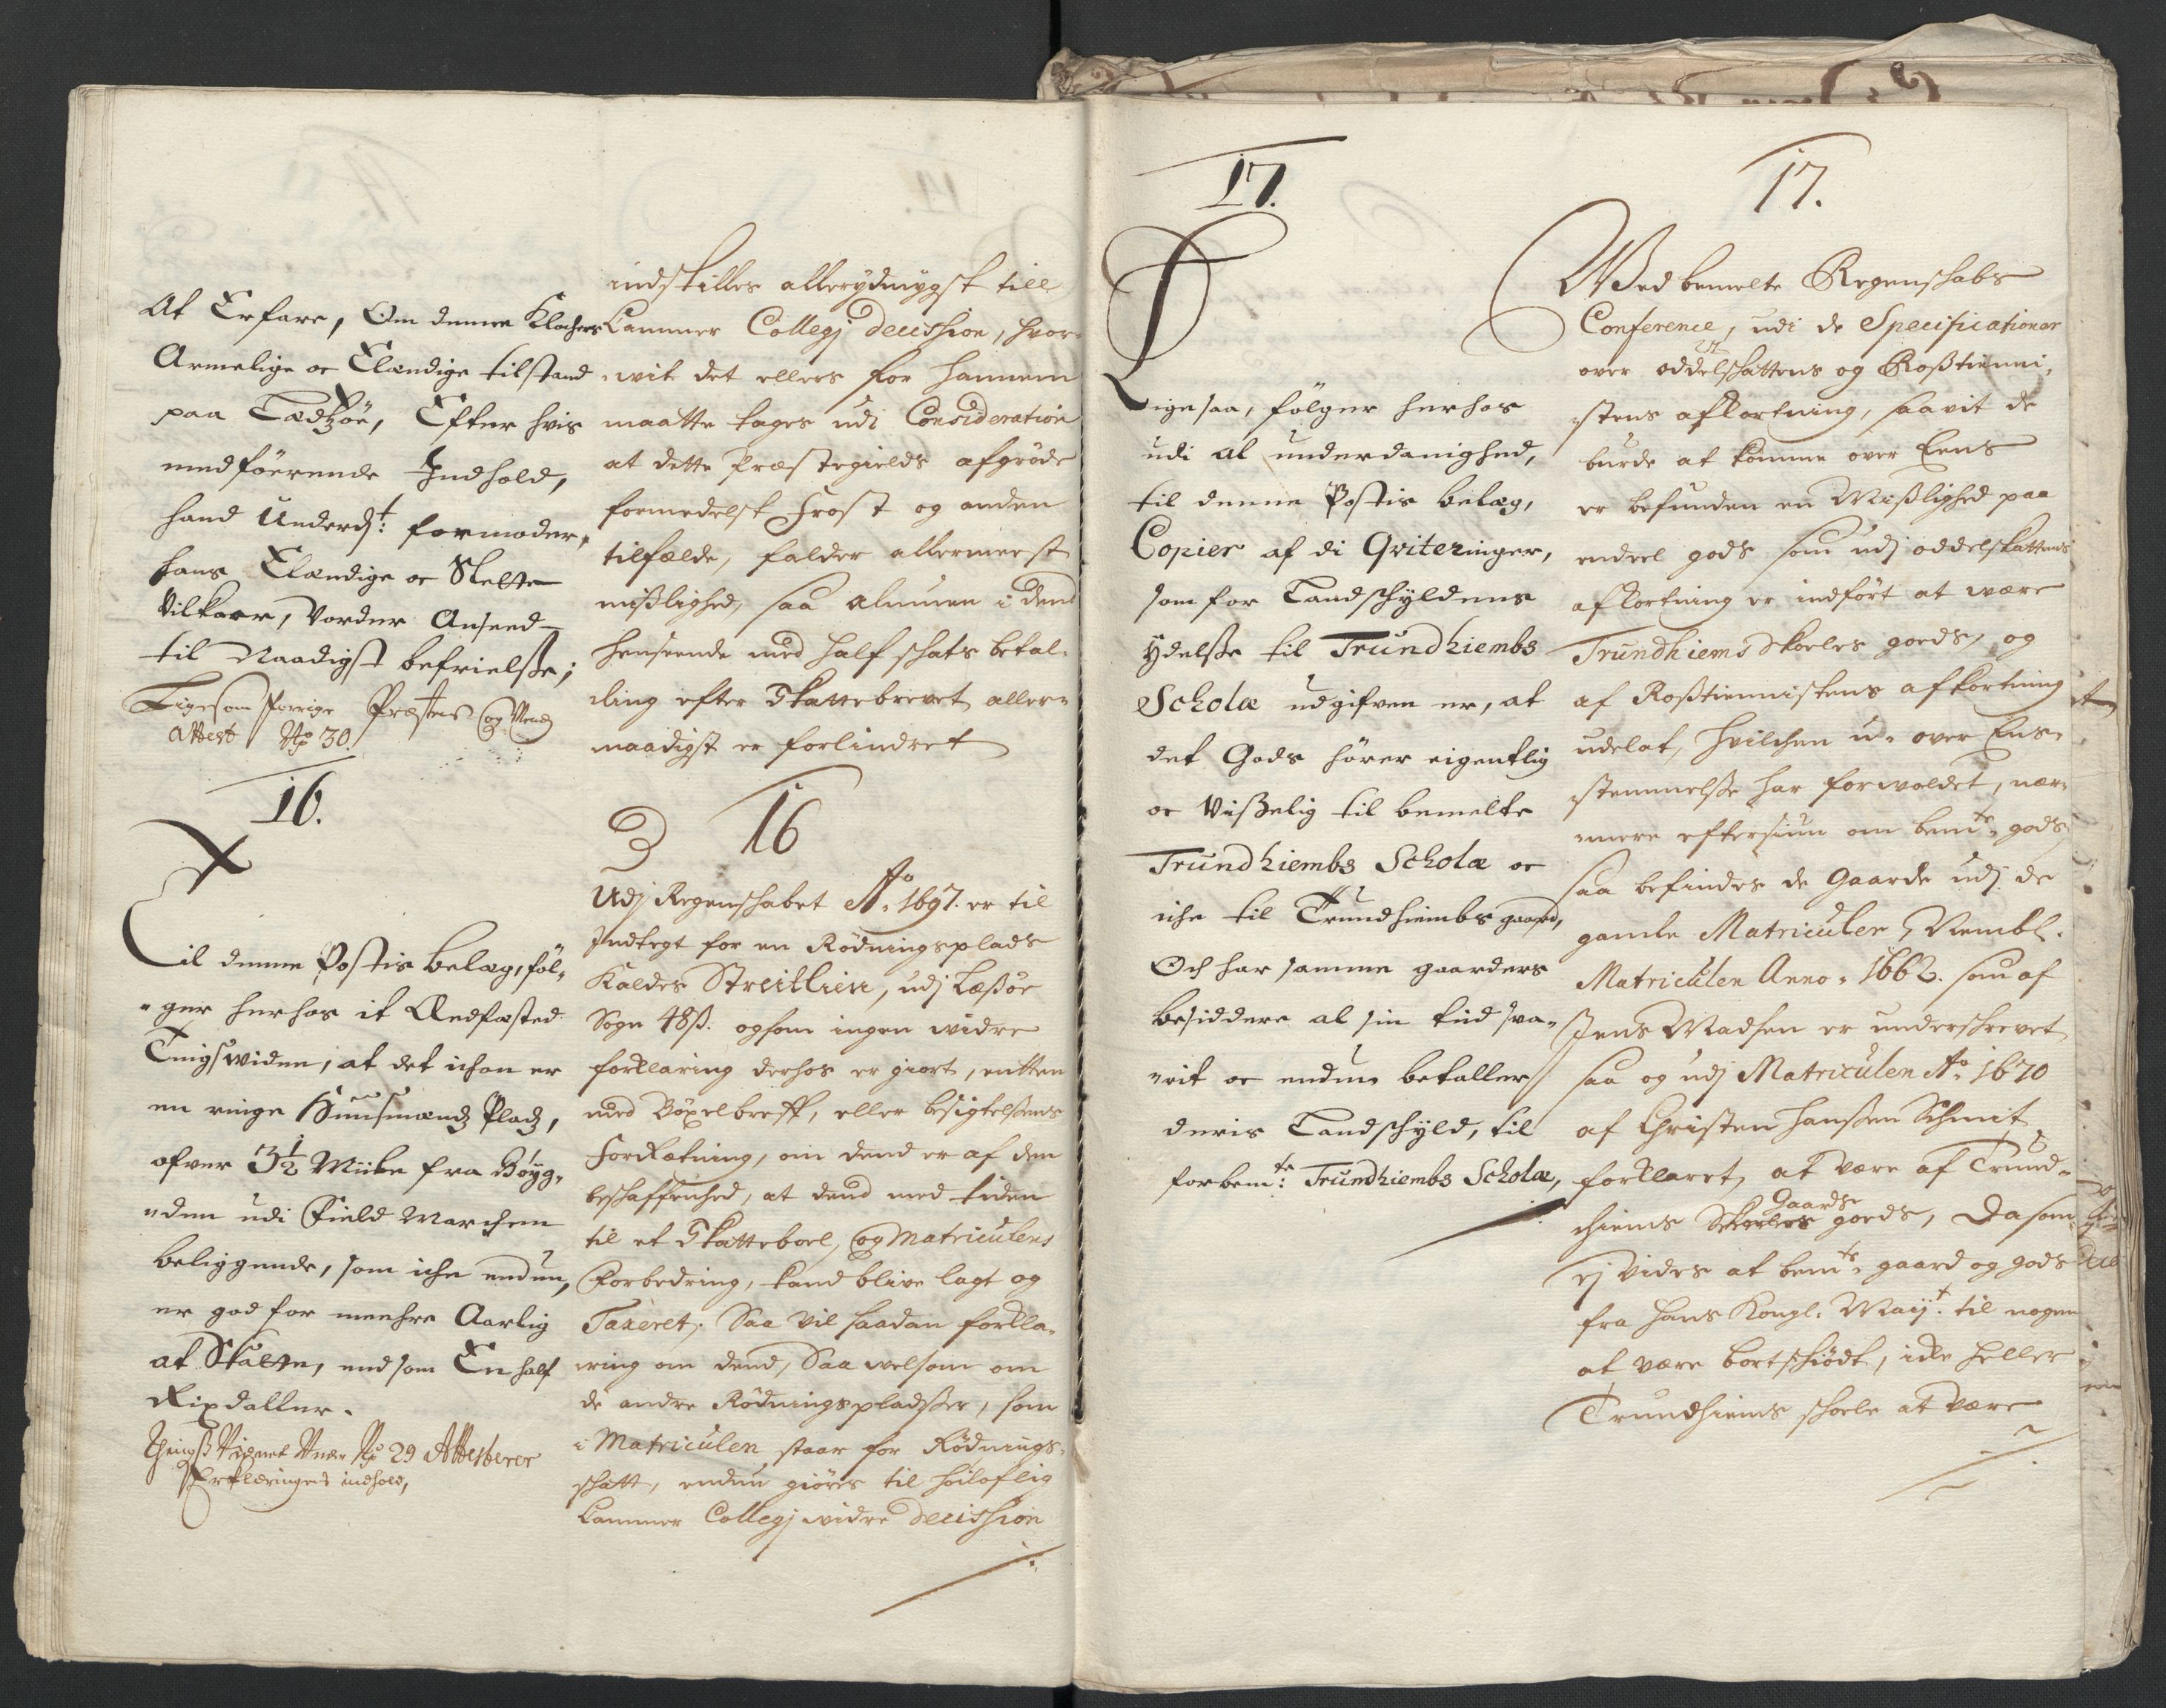 At Erfare, Om denne Klochers
Armelige oc Elændige tilstand
paa Lædtzöe, Efter hvis
medförende Indhold,
hand Underd:t formoder,
hans Elændige oc Slette
Vilkaar, Vorder Anseed
til Naadigst befrielsse;
Ligesom Præstens og
Attest No 30.
16.
Til denne Postis belæg, föl-
"ger herhos it Eedfæsted
Tingswidne, at det ichon er
en ringe Huusmands Plads,
ofver 3½ Miile fra Böyg-
"den udi Field Marchen
beliggende, som iche endnu,
er god for meehre Aarlig
at Skatte, end som En half
Rixdaller.
No 29 Attesterer
Erklæringens indhold,
indstilles allerydmygst till
Cammer Collegj decission, hvor-
wit det ellers for hannem
maatte tages udi Consideration
at dette Præstegields afgröde
formedelst Frost og anden
tilfælde, falder allermeest
mißlighed, saa almuen i den
henseende med half schats betal-
ling efter Skattebrevet aller-
naadigst er forlindret
16
Udj Regenschabet Ao 1697. er til
Indtegt for en Rödningsplads
Kaldes Streitlien, udj Leßöe
Sogn 48ß. og som ingen widre
forklaring derhos er giort, entten
med Böxelbreff, eller besigtelßens
Forretning, om dend er af den
beschaffenhed, at dend med tiden
til et Skatteboel, og Matriculens
Forbedring, kand blive lagt og
Taxeret, Saa vil saadan forkla-
ring om dend, Saa welsom om
de andre Rödningspladßer, som
i Matriculen staar for Rödnings-
schatt, endnu giöres til höiloflig
Cammer Collegj widre decission
17.
Ligesaa, fölger herhos
udi al underdanighed,
til denne Postis belæg,
Copier af di Qviteringer,
som for Landschyldens
Ydelsse til Trundhiembs
Scholæ udgifven er, at
det Gods hörer eigentlig
oc Vißelig til bemelte
Trundhiembs Scholæ oc
iche til Trundhiembs gaard,
Och har samme gaarders
besiddere al sin tiid sva-
"rit oc endnu betaller
deris Landschyld, til
forbem:te Trundhiembs Scholæ,
17.
Wed bemelte Regenschabs
Conference, udi de Specificationer
over oddelschattens og Roßtienni-
stens afkortning, saavit de
burde at komme over Eens
er befunden en Mißlighed paa
endeel gods som udj oddelskattens
afkortning er indfört at være
Trundhiems Skoeles goeds, og
af Roßtiennistens afkortning
udelat, hvilchen u-over Ens-
stemmelße har forvoldet, nær-
mere eftersiun om bemte gods,
saa befindes de Gaarde udj de
gamle Matriculer, Nembl.
Matriculen Anno 1662. som af
Jens Madsen er underschrevet
saa og udj Matriculen Ao 1670
af Christen Hanßen Schmit
forklaret, at være af Trund-
hiems Skoeles Gaards goeds, Da som
ej vides at bemte gaard og gods
fra Hans Kongl. Maij:t til nogen
at være bortschiödt, icke heller
Trundhiems schoele at være